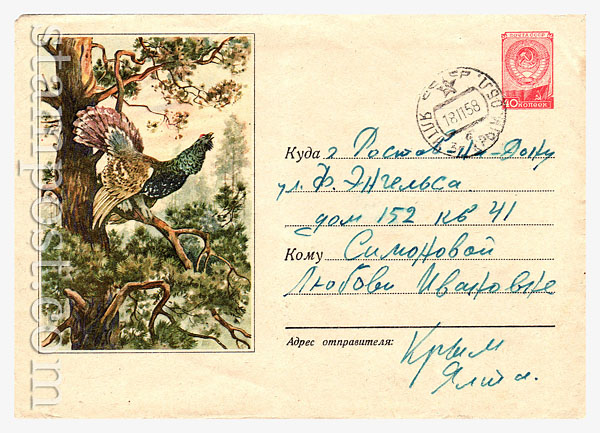 ПОЧТА СССР
40 КОПЕЕК
18.11.58
Куда г Ростов-На-Дону
ул. Ф. Энгельса
дом 152 кв 41
Кому Симоновой
Любови Ивановне
Адрес отправителя: Крым
Ялта.
stampost.com